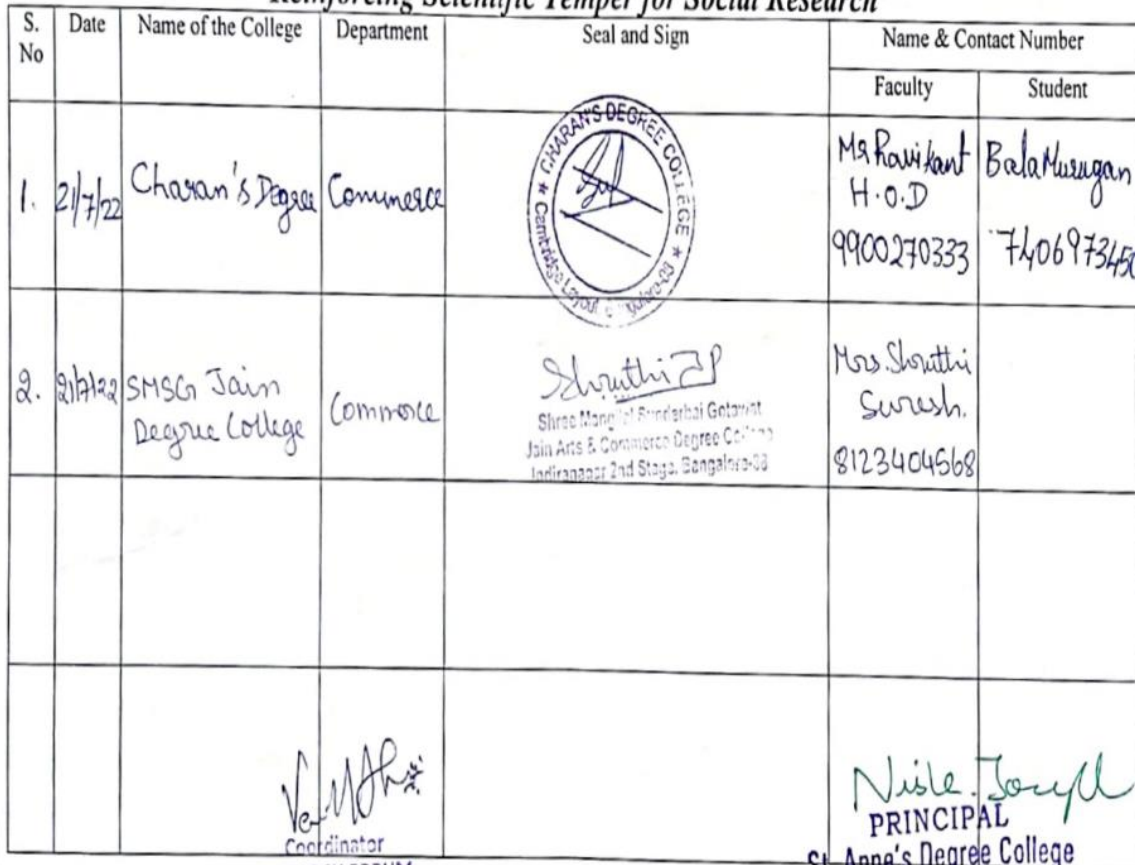 Reinforcing Scientific Temper for Social Research
S. No Date Name of the College Department Seal and Sign Name & Contact Number
Faculty Student
1. 21/7/22 Charan's Degree Commerce
CHARAN'S DEGREE COLLEGE
Cambridge Layout
Mr Ravikant
H.O.D
9900270333
BalaMurugan
7406973450
2. 21/7/22 SMSG Jain
Degree College
Commerce
Shruthi
Shree Mangilal Sunderbai Gotawat
Jain Arts & Commerce Degree College
Indiranagar 2nd Stage, Bangalore-38
Mrs. Shruthi
Suresh.
8123404568
Coordinator
PRINCIPAL
St. Anne's Degree College